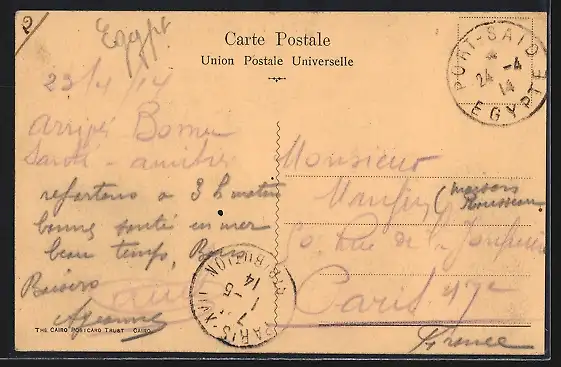 Egypt
Carte Postale
Union Postale Universelle
PORT-SAID
24 -4
14
EGYPTE
23/4/14
arrivés Bonne
Santé - amitiés
repartons a 3 h matin
bonne santé en mer
beau temps, Bons
Baisers
Monsieur
(maison
Rousseau
50 Rue de la Jonquière
Paris 17e
France
PARIS-XVII DISTRIBUTION
7
1 -5
14
THE CAIRO POSTCARD TRUST CAIRO